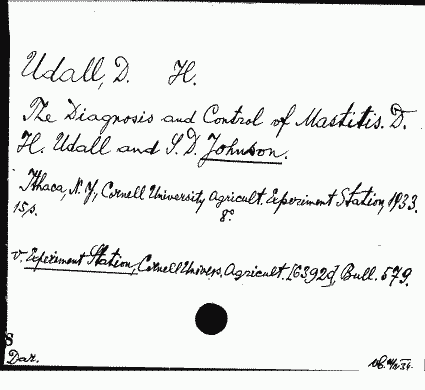 Udall, D. H.
The Diagnosis and Control of Mastitis. D.
H. Udall and S. D. Johnson.
Ithaca, N. Y., Cornell University Agricult. Experiment Station, 1933.
15 p. 8°
v. Experiment Station, Cornell Univers. Agricult. [6392d], Bull. 579.
Dar.